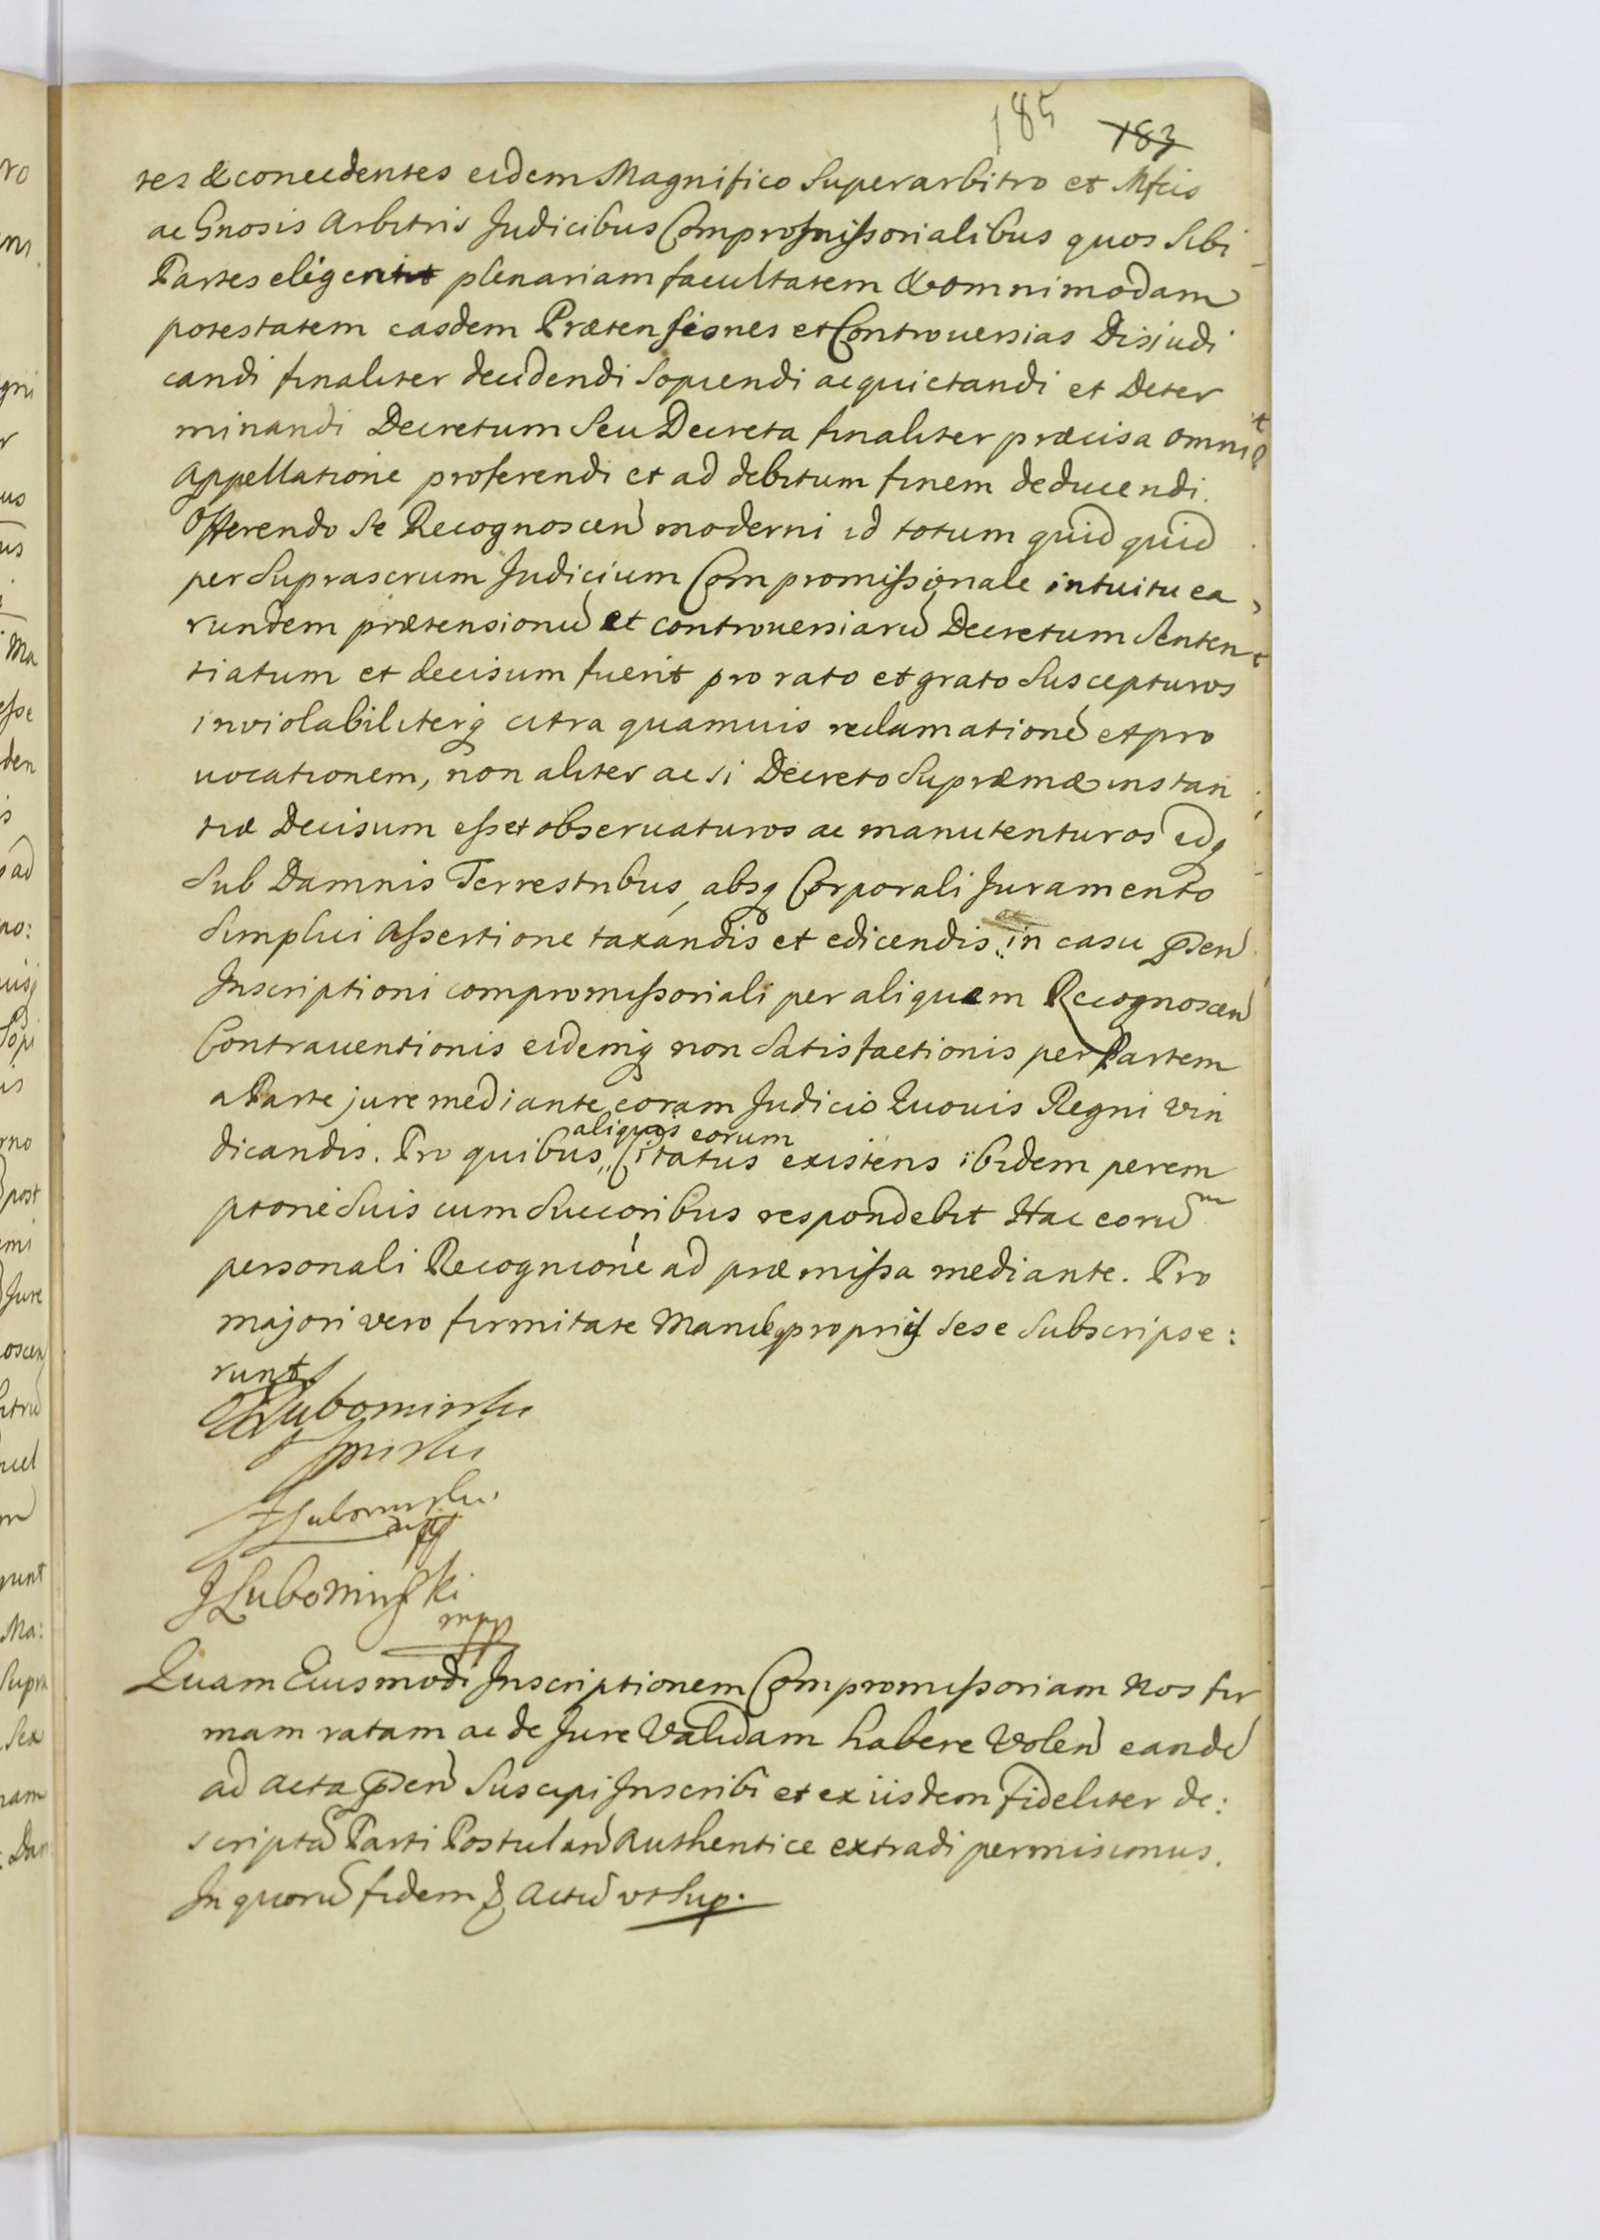 185 183
tes & concedentes eidem Magnifico Superarbitro et Mfcis
ac Gnosis Arbitris Judicibus Compromissorialibus quos sibi
Partes eligent plenariam facultatem & omnimodam
potestatem easdem Prætensiones et Controuersias Disiudi
candi finaliter decidendi sopiendi acquietandi et Deter
minandi Decretum seu Decreta finaliter præcisa omni
Appellatione proferendi et ad debitum finem deducendi.
Offerendo se Recognoscen moderni id totum quid quid
per suprascrum Judicium Compromissionale intuitu ea
rundem prætensionu et controuersiaru Decretum senten
tiatum et decisum fuerit pro rato et grato suscepturos
inviolabiliterq citra quamuis reclamatione et pro
uocationem, non aliter ac si Decreto supræmæ instan
tiæ Decisum esset obseruaturos ac manutenturos idq
sub Damnis Terrestribus, absq Corporali Juramento
simplici Assertione taxandis et edicendis in casu pden
Inscriptioni compromissoriali per aliquem Recognoscen
Contrauentionis eidemq non satisfactionis per Partem
a Parte jure mediante coram Judicio Quouis Regni vin
aliquis eorum
dicandis. Pro quibus Citatus existens ibidem perem
ptorie suis cum succoribus respondebit Hac eoru
personali Recognicone ad præmissa mediante. Pro
majori vero firmitate Manibq proprijs sese subscripse:
runt
Lubomirski
JLubomirski
JLubomirski
mpp
Quam Eiusmodi Inscriptionem Compromissoriam Nos fir
mam ratam ac de Jure Validam habere Volen eande
ad acta pden suscipi Inscribi et ex iisdem fideliter de:
scripta Parti Postulan Authentice extradi permisimus.
In quoru fidem & Actu vt sup.